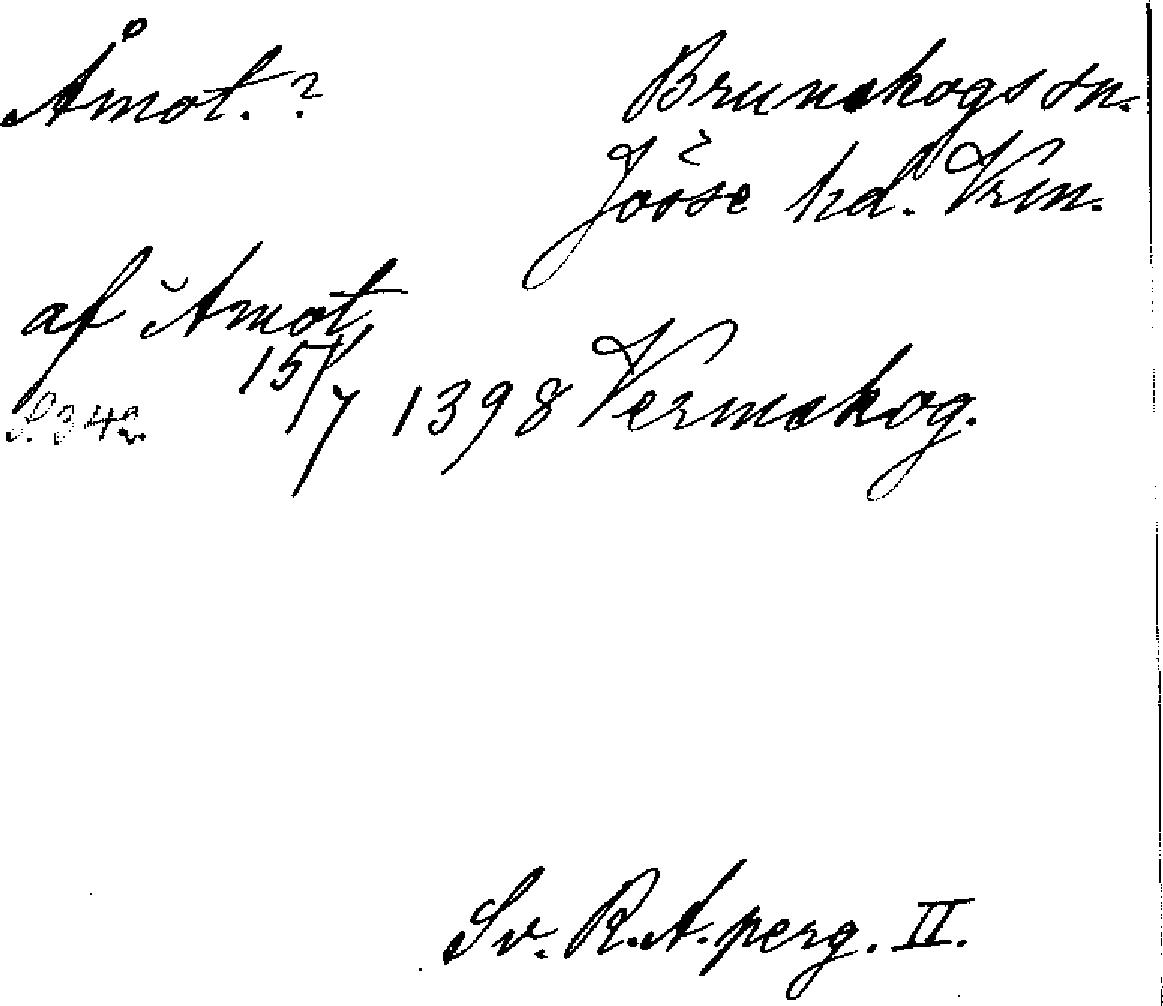 Åmot. ?
Brunskogs sn.
Jösse hd. Vrm.
af Åmot
15/7 1398 Vermskog.
S. 342.
Sv. R. A. perg. II.